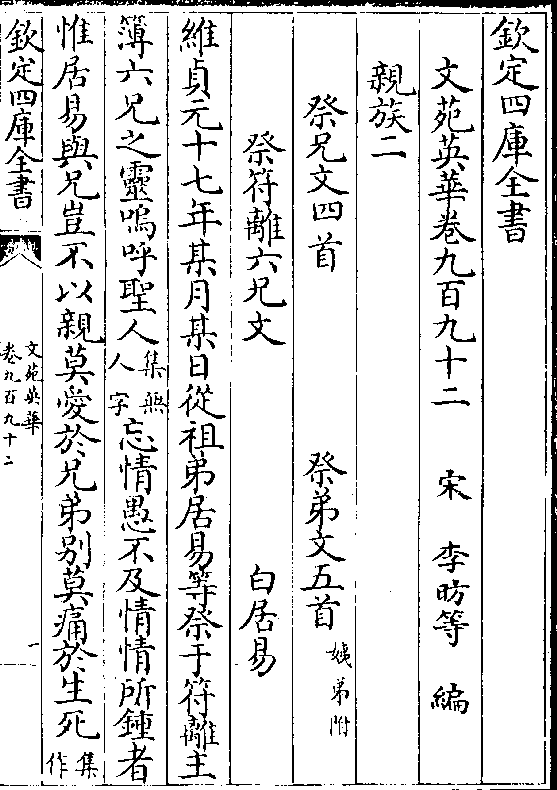 欽定四庫全書
文苑英華卷九百九十二　宋　李昉等　編
親族二
祭兄文四首　祭弟文五首姨弟附
祭符離六兄文　白居易
維貞元十七年某月某日從祖弟居易等祭于符離主
簿六兄之靈嗚呼聖人集無人字忘情愚不及情情所鍾者
惟居易與兄豈不以親莫愛於兄弟別莫痛於生死集作
欽定四庫全書
文苑英華
卷九百九十二
一